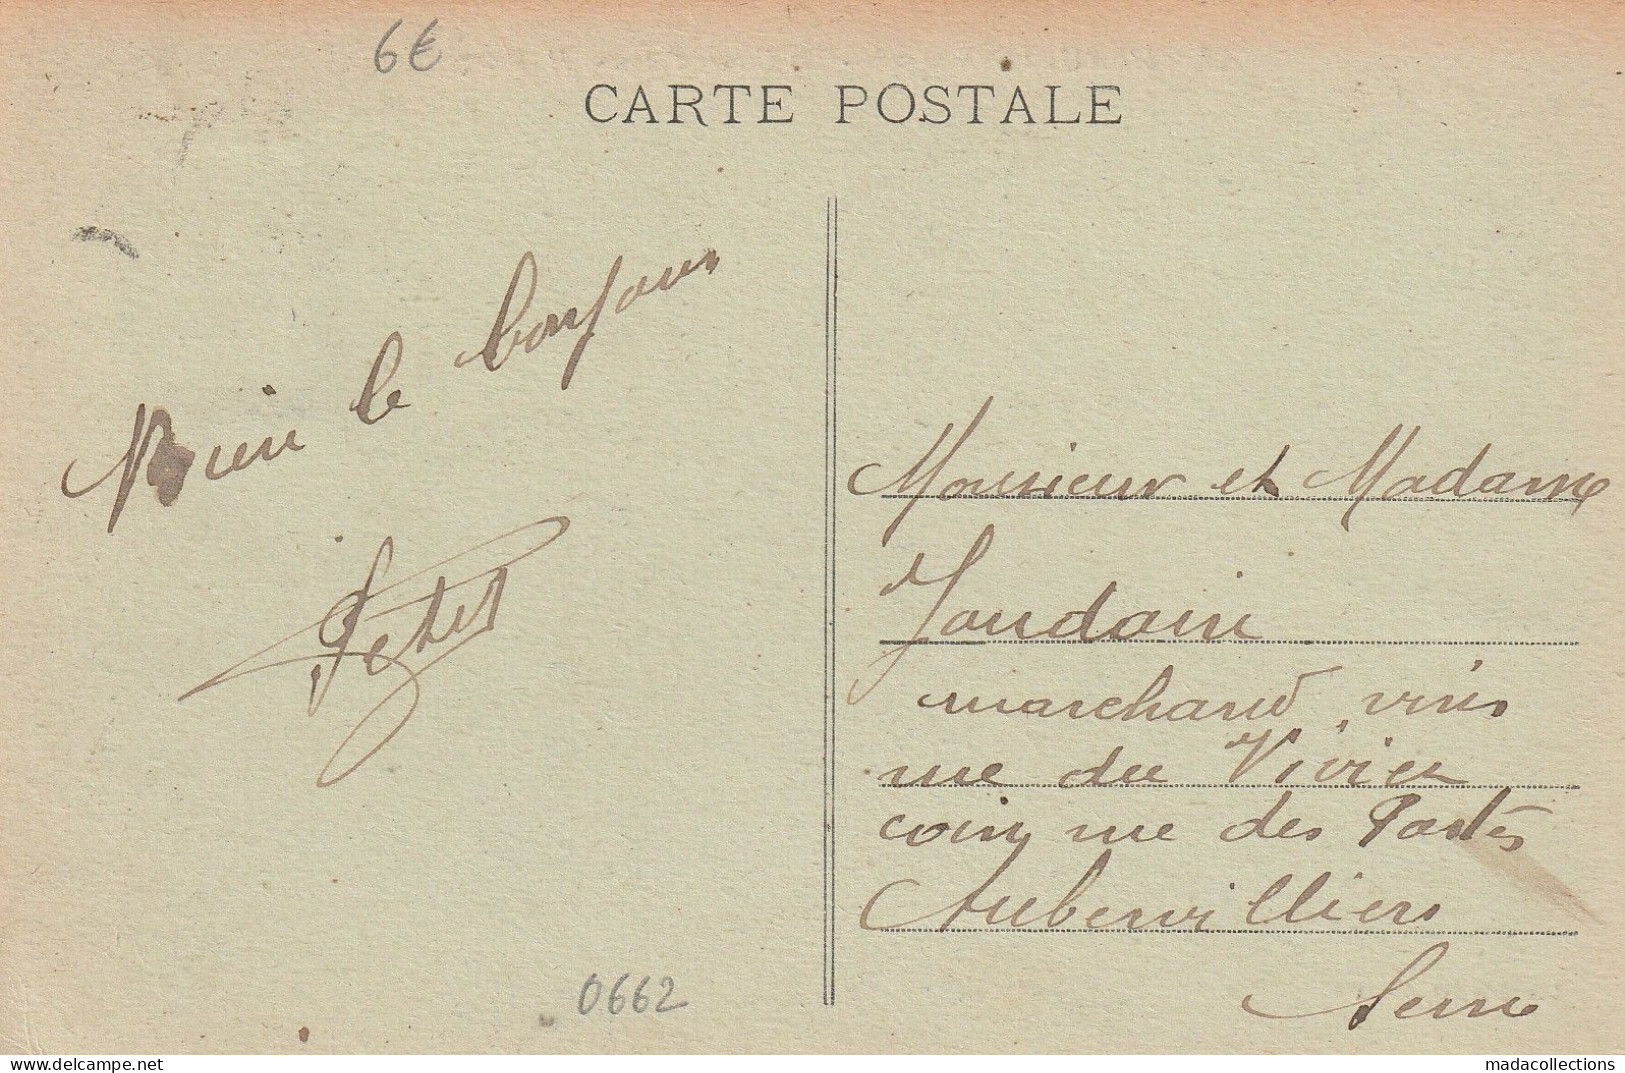 6€
CARTE POSTALE
Bien le bonjour
Monsieur et Madame
Jourdain
marchand vins
rue du Vivier
coin rue des Postes
Aubervilliers
Seine
0662
delcampe.net
madacollections